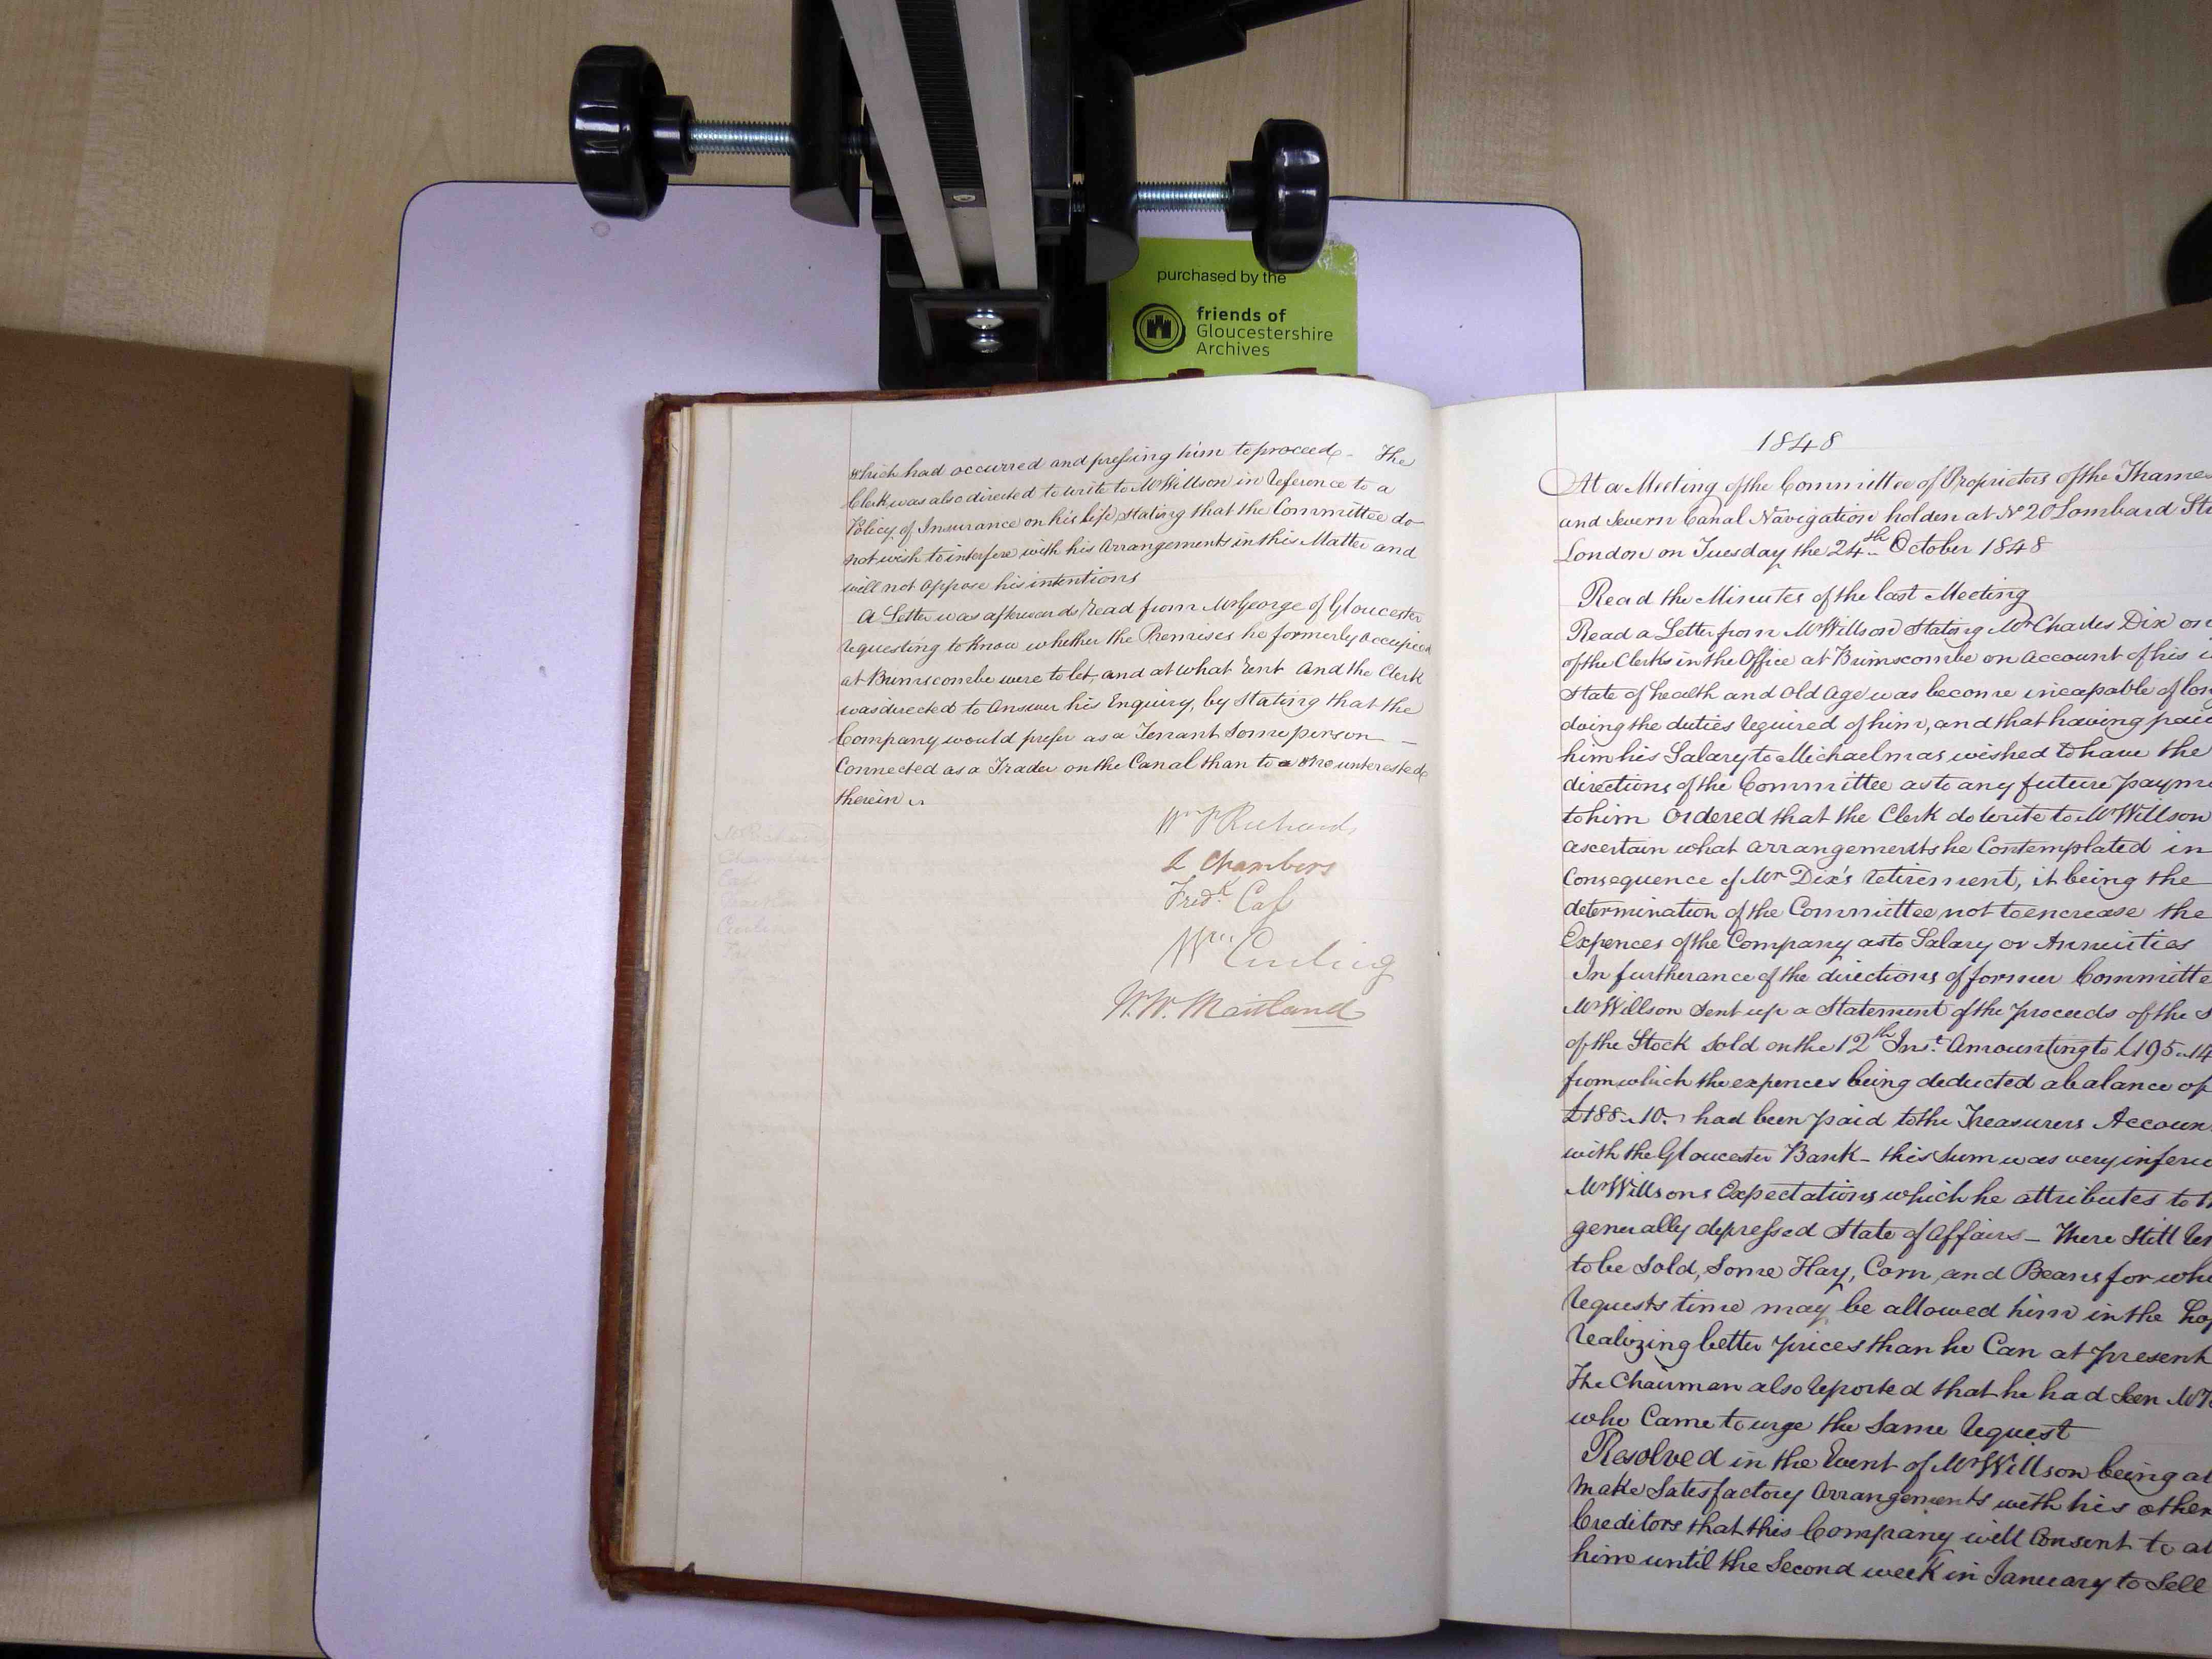 purchased by the
friends of
Gloucestershire
Archives
which had occurred and pressing him to proceed - The
Clerk was also directed to write to Mr Willson in reference to a
Policy of Insurance on his life, stating that the Committee do
not wish to interfere with his Arrangements in this Matter and
will not oppose his intentions
A Letter was afterwards read from Mr George of Gloucester
requesting to know whether the Premises he formerly occupied
at Brimscombe were to let, and at what rent and the Clerk
was directed to answer his Enquiry, by Stating that the
Company would prefer as a Tennant Some person -
Connected as a Trader on the Canal than to uninterested
therein
Wm P Richards
Chambers
Fredk Cass
Wm Curling
W. W. Maitland
1848
At a Meeting of the Committee of Proprietors of the Thames
and Severn Canal Navigation holden at No 20 Lombard St
London on Tuesday the 24th October 1848
Read the Minutes of the last Meeting
Read a Letter from Mr Willson Stating Mr Charles Dix
of the Clerks in the Office at Brimscombe on account of his
State of health and old age was become incapable of
doing the duties required of him, and that having paid
him his Salary to Michaelmas wished to have the
directions of the Committee as to any future
to him Ordered that the Clerk do write to Mr Willson
ascertain what arrangements he Contemplated in
Consequence of Mr Dix's retirement, it being the
determination of the Committee not to encrease the
Expences of the Company as to Salary or Annuities
In furtherance of the directions of former Committe
Mr Willson Sent up a Statement of the proceeds of the S
of the Stock Sold on the 12th Inst. Amounting to £195..14
from which the expences being deducted a balance of
£188..10.. had been paid to the Treasurers Accoun
with the Gloucester Bank - this Sum was very
Mr Willsons Expectations which he attributes to
generally depressed State of Affairs - There Still
to be Sold, Some Hay, Corn, and Beans for
requests time may be allowed him in the
realizing better prices than he Can at present
The Chairman also reported that he had Seen Mr
who Came to urge the Same request
Resolved in the Event of Mr Willson being
make Satisfactory Arrangements with his other
Creditors that this Company will Consent to
him until the Second week in January to Sell